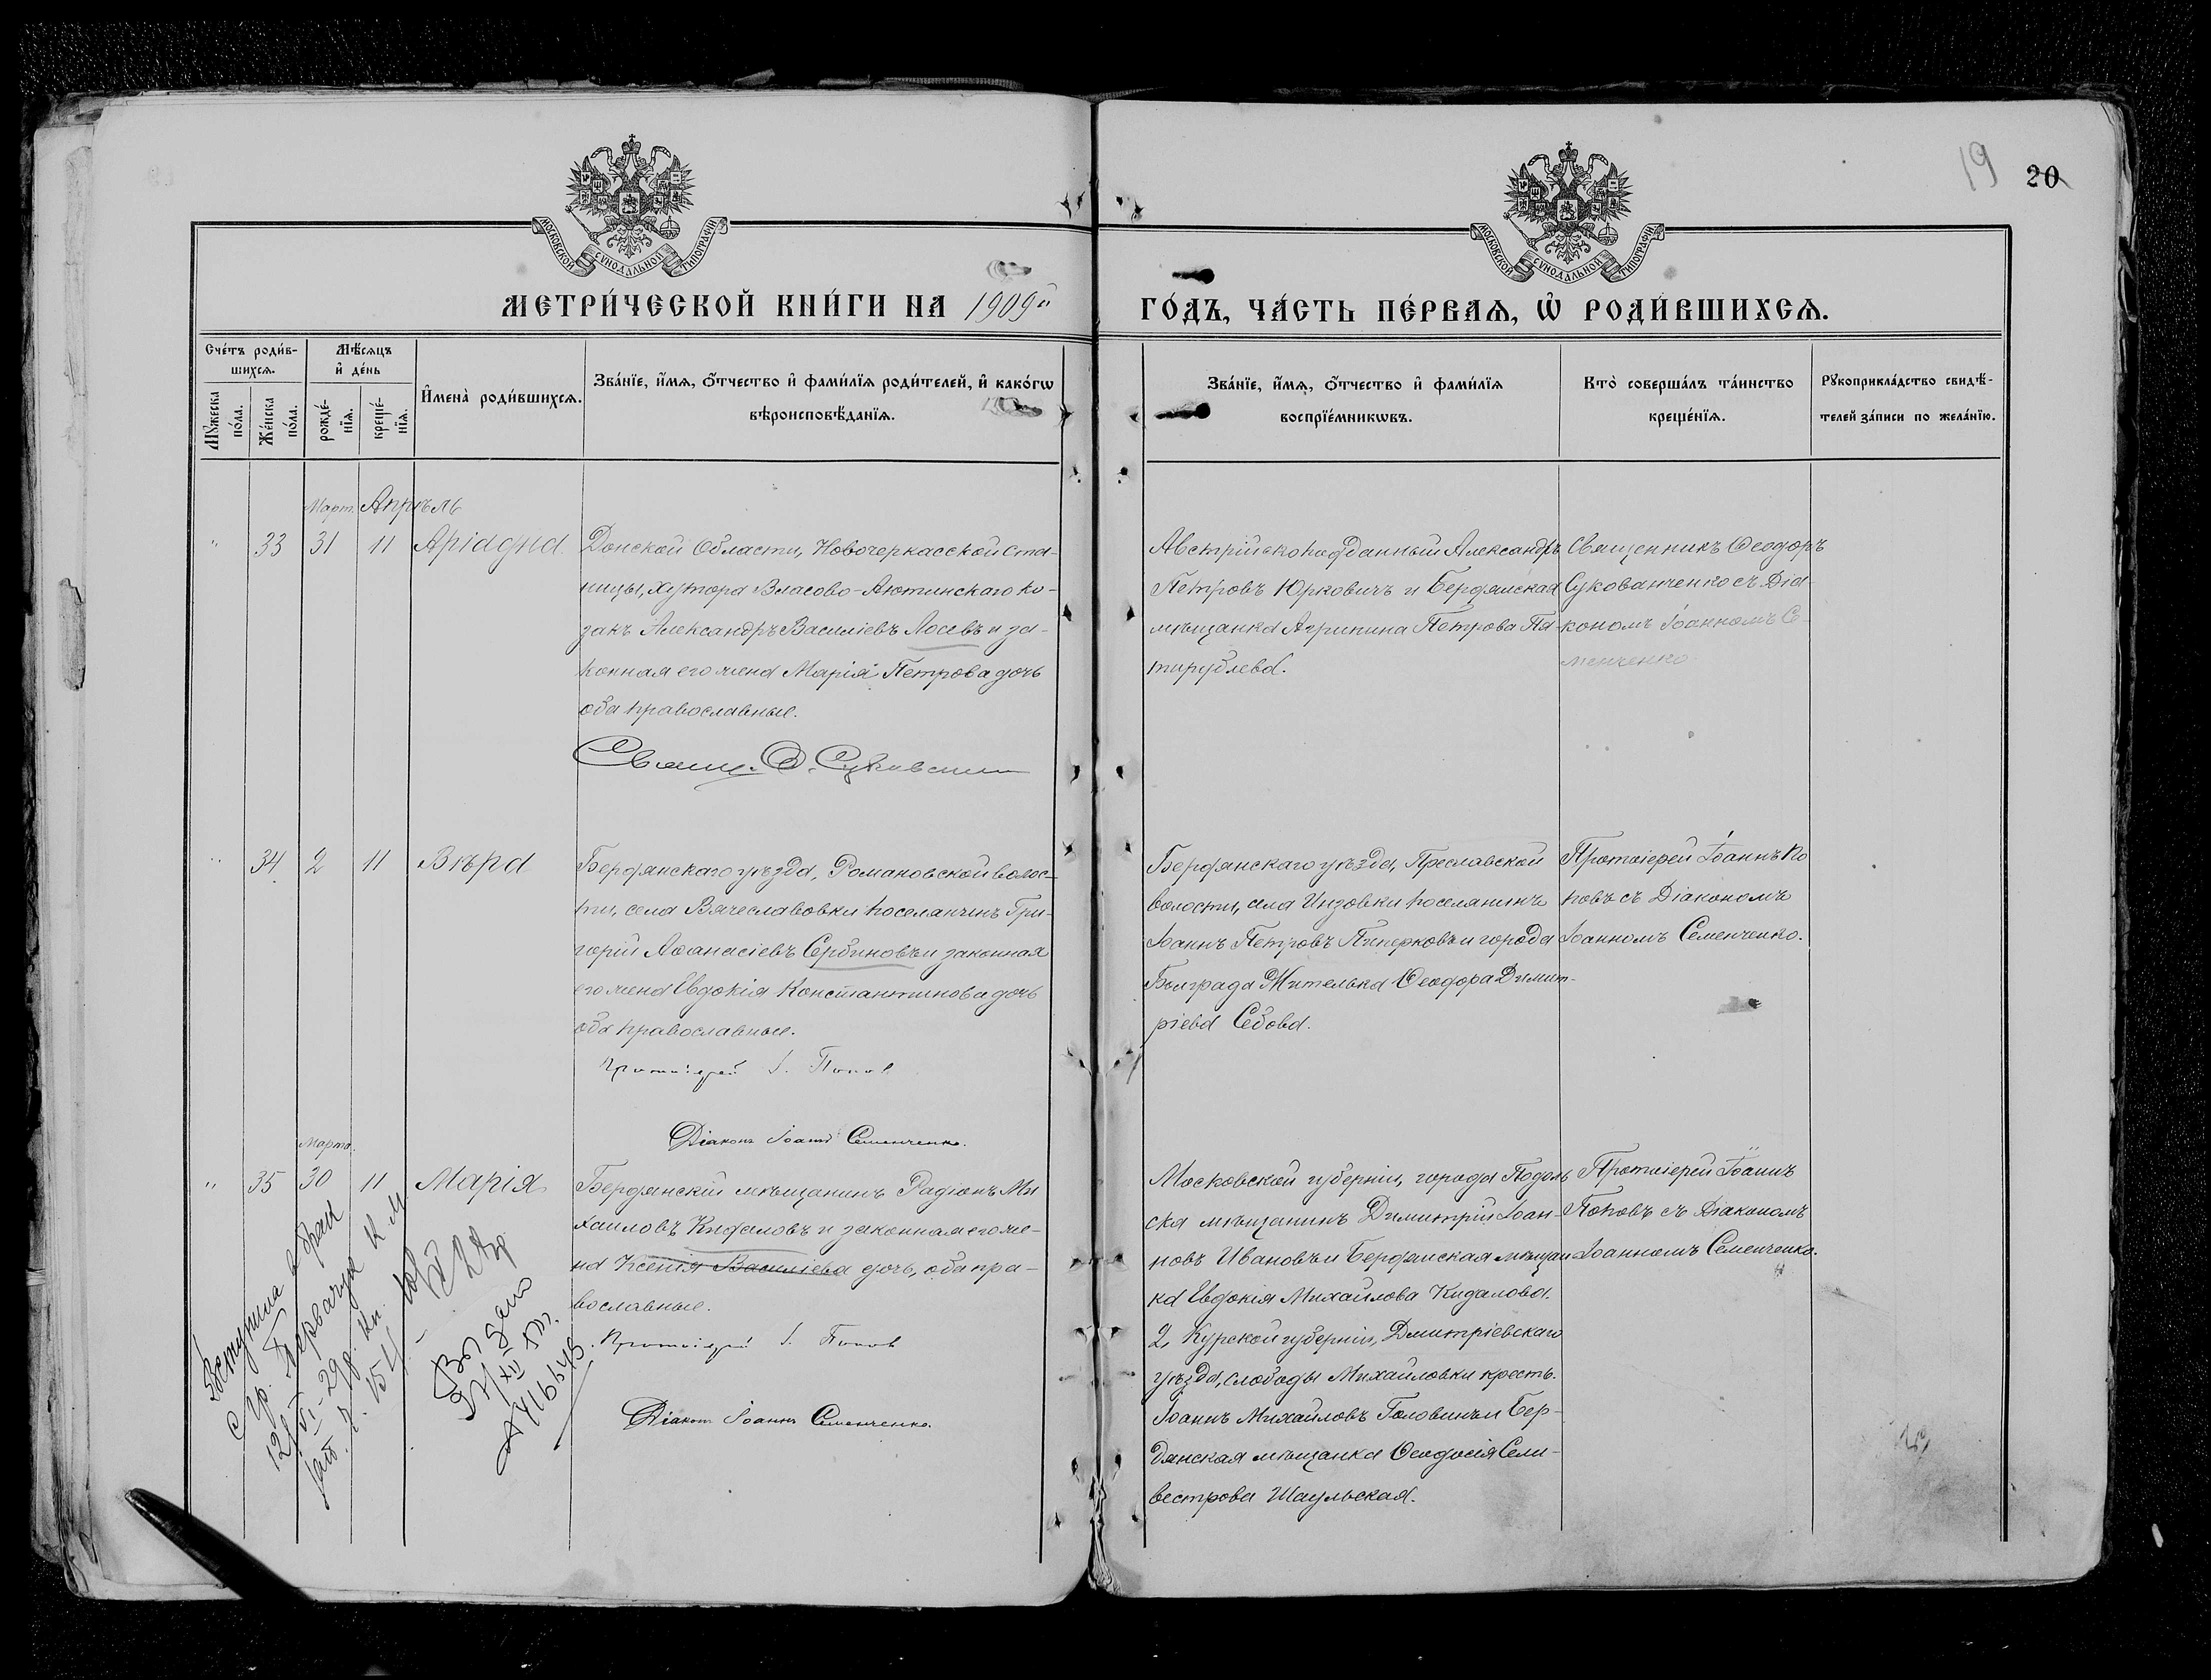 19 20
МОСКОВСКОЙ СѴНОДАЛЬНОЙ ТИПОГРАФІИ
МОСКОВСКОЙ СѴНОДАЛЬНОЙ ТИПОГРАФІИ
МЕТРИ́ЧЕСКОЙ КНИ́ГИ НА 1909й ГО́ДЪ, ЧА́СТЬ ПЕ́РВАѦ, Ѽ РОДИ́ВШИХСѦ.
Сче́тъ роди́в-
шихсѧ.
Мꙋ́жеска
по́ла.
Же́нска
по́ла.
Мѣ́сѧцъ
и҆ де́нь
рожде́-
нїѧ.
креще́-
нїѧ.
И҆мена̀ роди́вшихсѧ.
Зва́нїе, и҆́мѧ, ѻ҆́тчество и҆ фами́лїѧ роди́телей, и҆ како́гѡ
вѣроисповѣ́данїѧ.
Зва́нїе, и҆́мѧ, ѻ҆́тчество и҆ фами́лїѧ
воспрїе́мникѡвъ.
Кто̀ соверша́лъ та́инство
креще́нїѧ.
Рꙋкоприкла́дство свидѣ́-
телей за́писи по жела́нїю.
Март. Апрѣль
" 33 31 11 Аріадна
Донской Области, Новочеркасской ста-
ницы, хутора Власово-Аютинскаго ко-
закъ Александръ Василіевъ Лосевъ и за-
конная его жена Марія Петрова дочь
оба православные.
Свящ. Ѳ. Сукован
Австрійско подданный Александръ
Петровъ Юрковичъ и Бердянская
мѣщанка Агрипина Петрова Пя-
тирублева.
Священникъ Ѳеодоръ
Сукованченко съ Діа-
кономъ Іоанномъ Се-
менченко
" 34 2 11 Вѣра
Бердянскаго уѣзда, Романовской волос-
ти, села Вячеславовки поселянинъ Гри-
горій Аѳанасіевъ Сербиновъ и законная
его жена Евдокія Константинова дочь
оба православные.
Протоіерей І. Попов
Діаконъ Іоаннъ Семенченко.
Бердянскаго уѣзда, Преславской
волости, села Инзовки поселянинъ
Іоаннъ Петровъ Пиперковъ и города
Болграда Жителька Ѳеодора Димит-
ріева Себова.
Протоіерей Іоаннъ По
повъ съ Діакономъ
Іоанномъ Семенченко.
Марта.
" 35 30 11 Марія
Бердянскій мѣщанинъ Радіонъ Ми
хаиловъ Кидаловъ и законная его же-
на Ксенія Василіева дочь, оба пра-
вославные.
Протоіерей І. Попов
Діаконъ Іоаннъ Семенченко.
Московской губерніи, города Подоль
ска мѣщанинъ Димитрій Іоан-
новъ Ивановъ и Бердянская мѣщан
ка Евдокія Михаилова Кидалова.
2, Курской губерніи, Дмитріевскаго
уѣзда, слободы Михайловки крестъ.
Іоаннъ Михаиловъ Головинъ и Бер-
дянская мѣщанка Ѳеодосія Сели-
вестрова Шаульская.
Протоіерей Іоаннъ
Поповъ съ Діакономъ
Іоанномъ Семенченко.
Вступила в брак
с гр. Первачук К М
12/VI-29 р. кн.